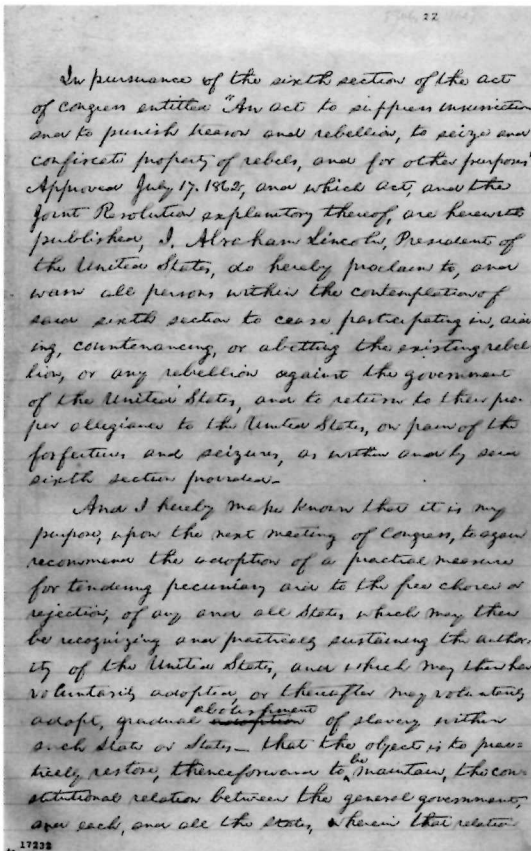 22
In pursuance of the sixth section of the act
of congress entitled "An act to suppress insurrection
and to punish treason and rebellion, to seize and
confiscate property of rebels, and for other purposes"
Approved July 17. 1862, and which act, and the
Joint Resolution explanatory thereof, are herewith
published, I, Abraham Lincoln, President of
the United States, do hereby proclaim to, and
warn all persons within the contemplation of
said sixth section to cease participating in, aid-
ing, countenancing, or abetting the existing rebel-
lion, or any rebellion against the government
of the United States, and to return to their pro-
per allegiance to the United States, on pain of the
forfeitures and seizures, as within and by said
sixth section provided—
And I hereby make known that it is my
purpose, upon the next meeting of congress, to again
recommend the adoption of a practical measure
for tendering pecuniary aid to the free choice or
rejection, of any and all States which may then
be recognizing and practically sustaining the author-
ity of the United States, and which may then have
voluntarily adopted, or thereafter may voluntarily
abolishment
adopt, gradual adoption of slavery within
such State or States— that the object is to prac-
tically restore, thenceforward to be maintain, the con-
stitutional relation between the general government,
and each, and all the states, wherein that relation
17232